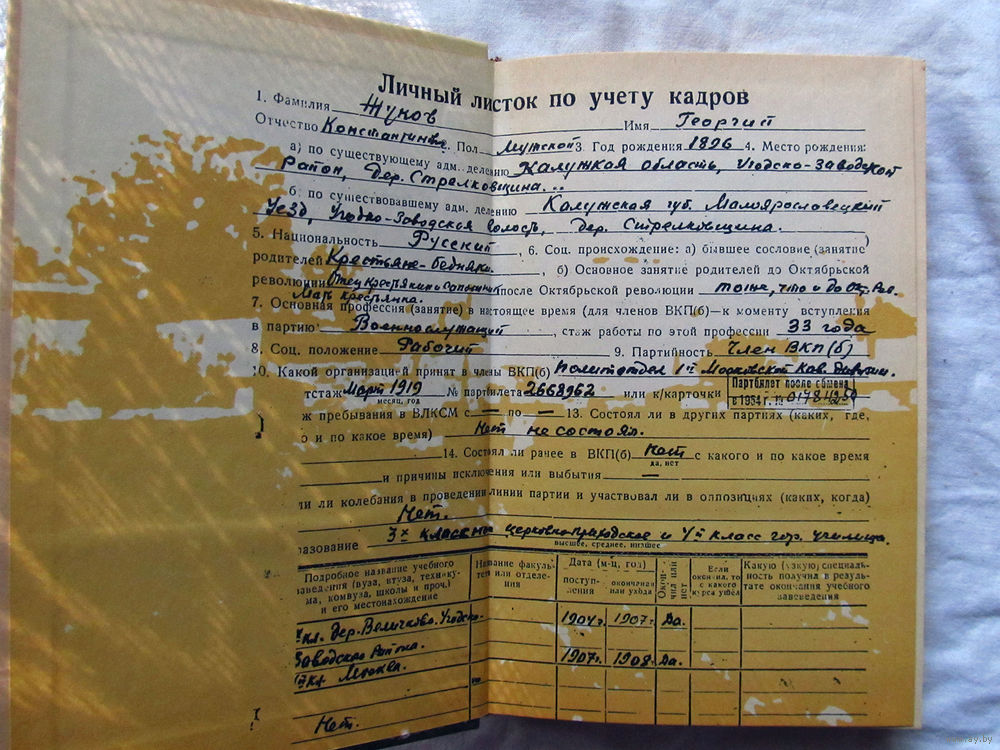 Личный листок по учету кадров
1. Фамилия Жуков Имя Георгий
Отчество Константинов. 2. Пол Мужской 3. Год рождения 1896 4. Место рождения:
а) по существующему адм. делению Калужская область, Угодско-Заводской
район, дер. Стрелковщина...
б) по существовавшему адм. делению Калужская губ. Малоярославецкий
уезд, Угодско-Заводская волость, дер. Стрелковщина.
5. Национальность Русский, 6. Соц. происхождение: а) бывшее сословие (занятие)
родителей Крестьяне-бедняки, б) Основное занятие родителей до Октябрьской
революции Отец крестьянин и сапожник после Октябрьской революции тоже, что и до Окт. Рев.
Мать крестьянка.
7. Основная профессия (занятие) в настоящее время (для членов ВКП(б)—к моменту вступления
в партию) Военнослужащий, стаж работы по этой профессии 33 года
8. Соц. положение Рабочий 9. Партийность Член ВКП(б)
10. Какой организацией принят в члены ВКП(б) Политотдел 1й Московской Кав. дивизии.
тстаж март 1919 № партбилета 2668962 или к/карточки Партбилет после обмена
месяц, год в 1954 г. №
ж пребывания в ВЛКСМ с — по — 13. Состоял ли в других партиях (каких, где,
о и по какое время) Нет не состоял.
14. Состоял ли ранее в ВКП(б) нет с какого и по какое время
да, нет
и причины исключения или выбытия —
ли ли колебания в проведении линии партии и участвовал ли в оппозициях (каких, когда)
Нет.
разование 3х классное церковноприходское и 4й класс гор. училища.
высшее, среднее, низшее
Подробное название учебного заведения (вуза, втуза, технику-
ма, комвуза, школы и проч.)
и его местонахождение
Название факуль-
тета или отделе-
ния
Дата (м-ц, год)
поступ-
ления
окончания
или ухода
Окон-
чил или
нет
Если
окончил, то
с какого
курса ушел
Какую (узкую) специаль-
ность получил в резуль-
тате окончания учебного
заведения
кл. дер. Величково. Угодско- 1904г. 1907г. Да.
Заводского района.
кл Москва. 1907г. 1908. Да.
Нет.